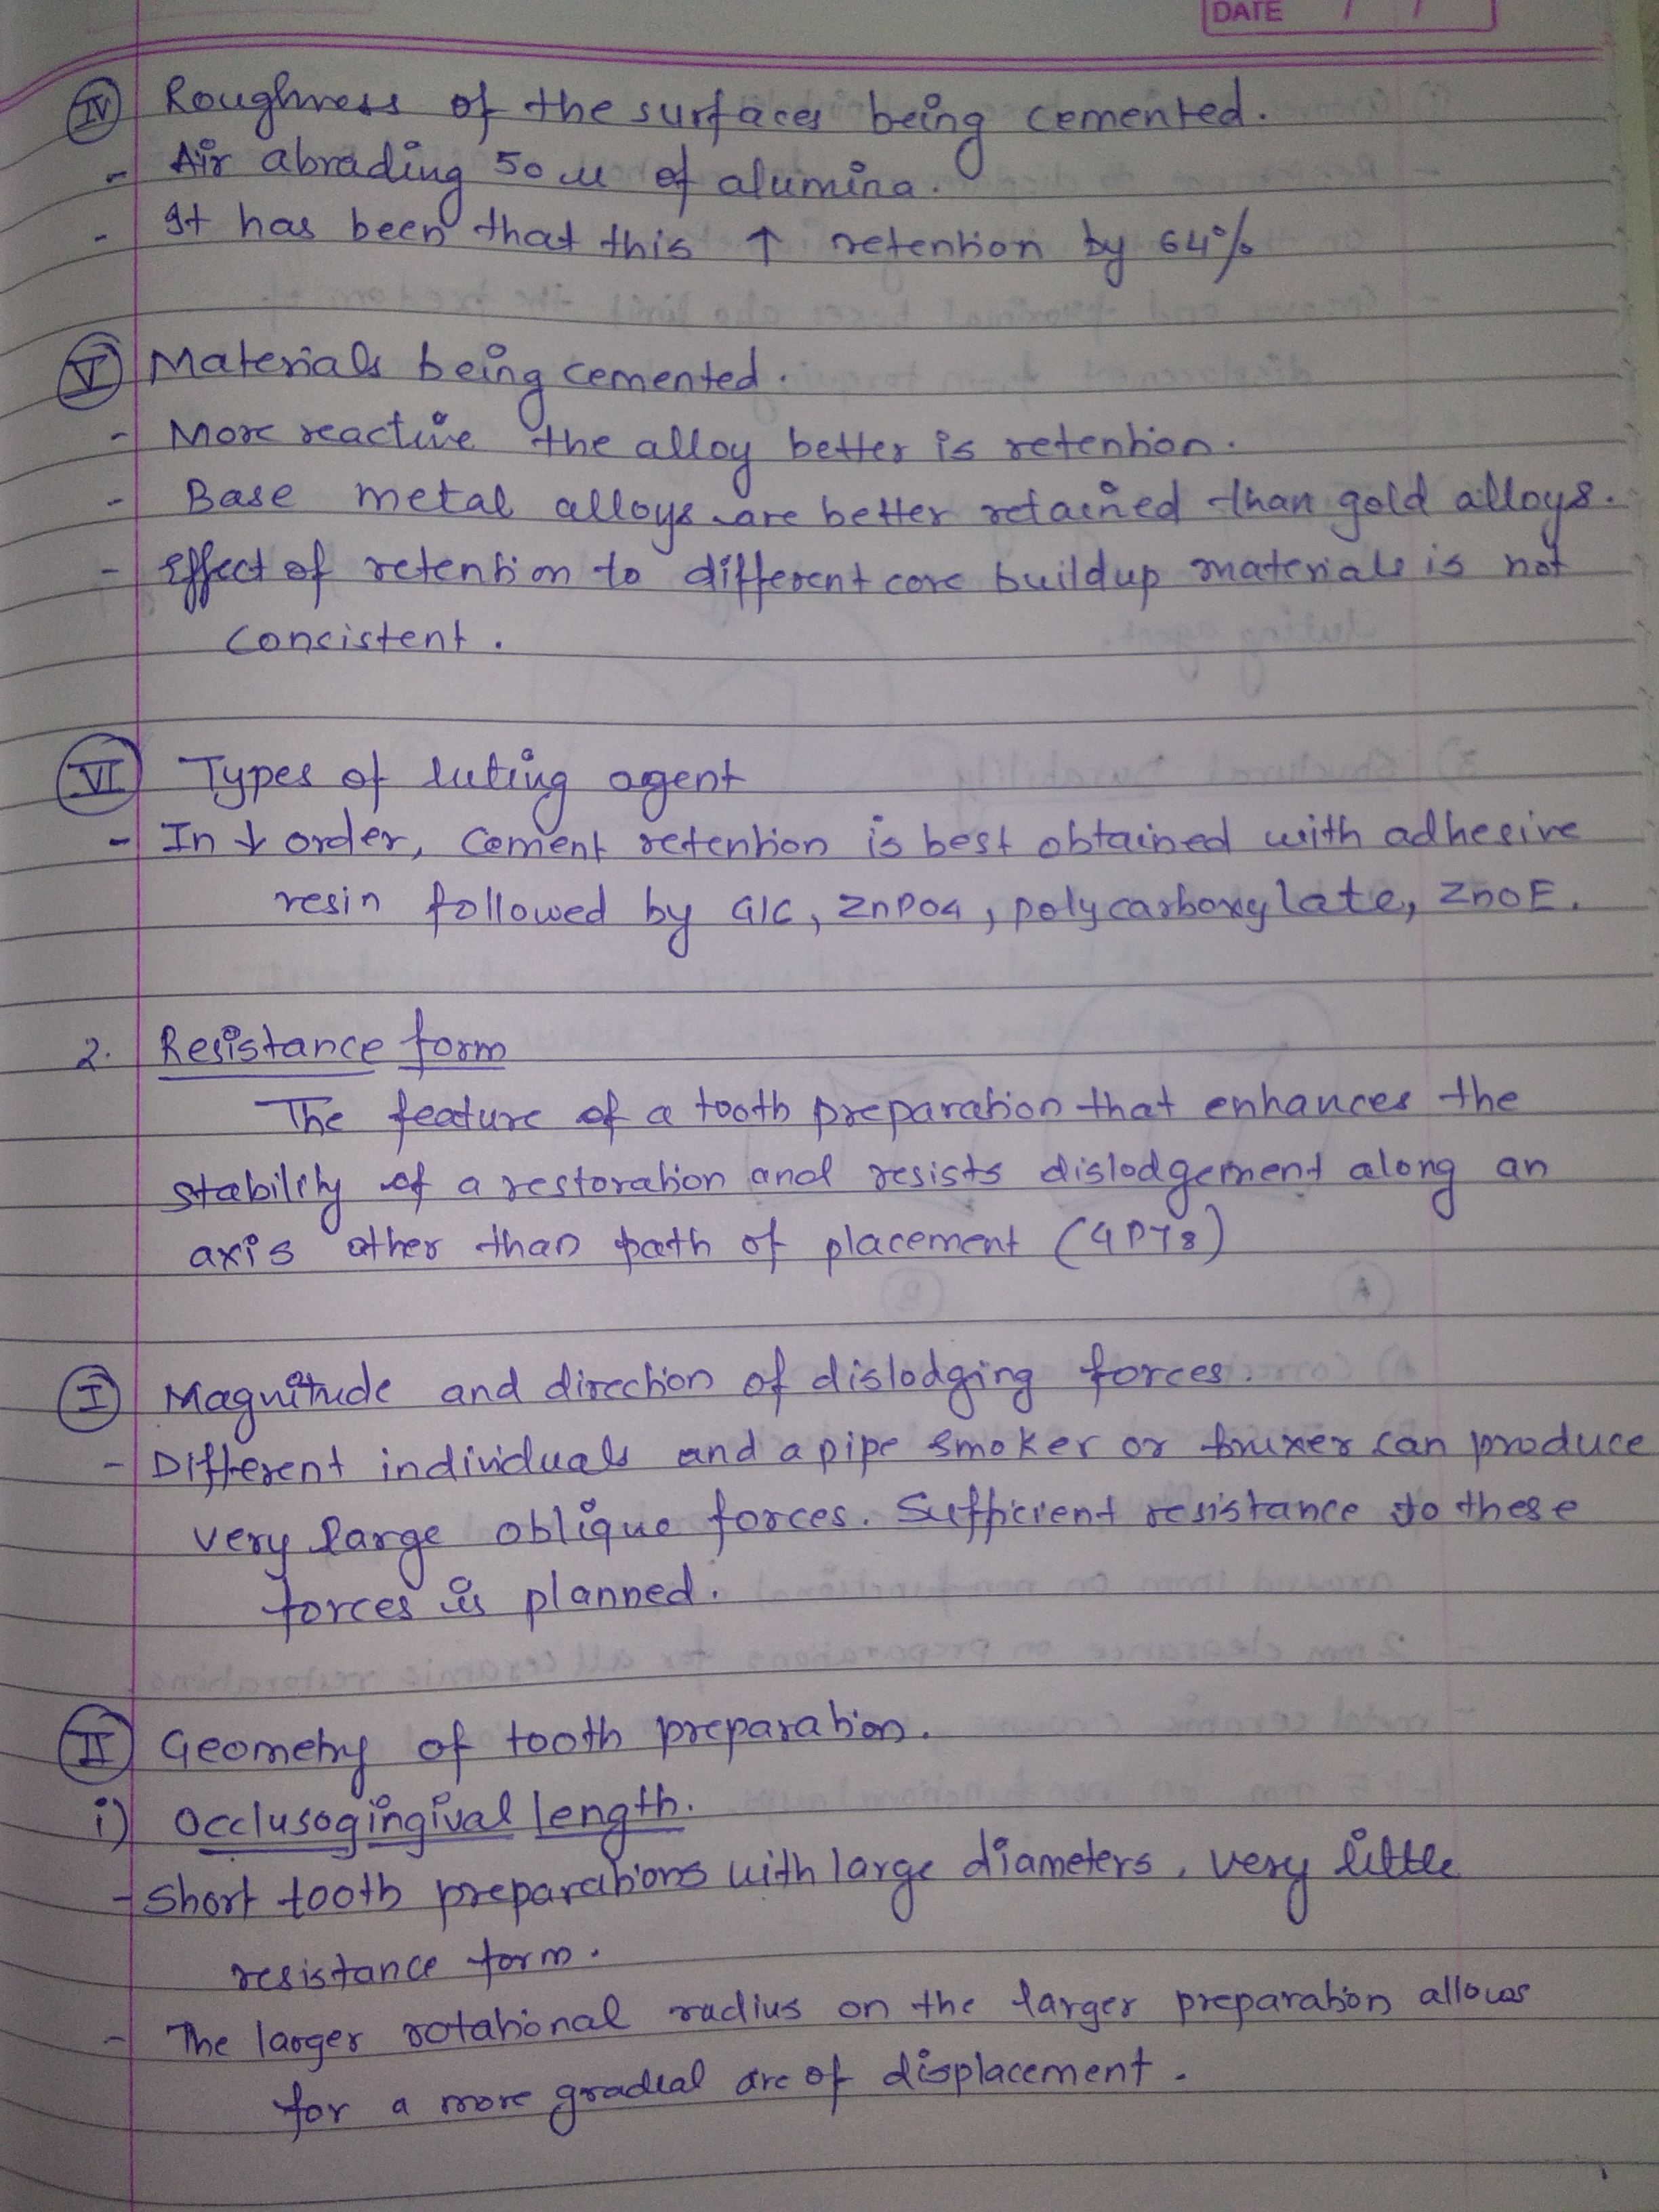 DATE / /
IV Roughness of the surfaces being cemented.
- Air abrading 50 u of alumina.
- It has been that this ↑ retention by 64%
V Materials being cemented.
- More reactive the alloy better is retention.
- Base metal alloys are better retained than gold alloys.
- Effect of retention to different core buildup materials is not
concistent.
VI Types of luting agent
- In ↓ order, cement retention is best obtained with adhesive
resin followed by GIC, ZnPO4, polycarboxylate, ZnOE.
2. Resistance form
The feature of a tooth preparation that enhances the
stability of a restoration and resists dislodgement along an
axis other than path of placement (GPT8)
I Magnitude and direction of dislodging forces.
- Different individuals and a pipe smoker or bruxer can produce
very large oblique forces. Sufficient resistance to these
forces is planned.
II Geometry of tooth preparation.
i) Occlusogingival length.
- Short tooth preparations with large diameters, very little
resistance form.
- The larger rotational radius on the larger preparation allows
for a more gradual arc of displacement.